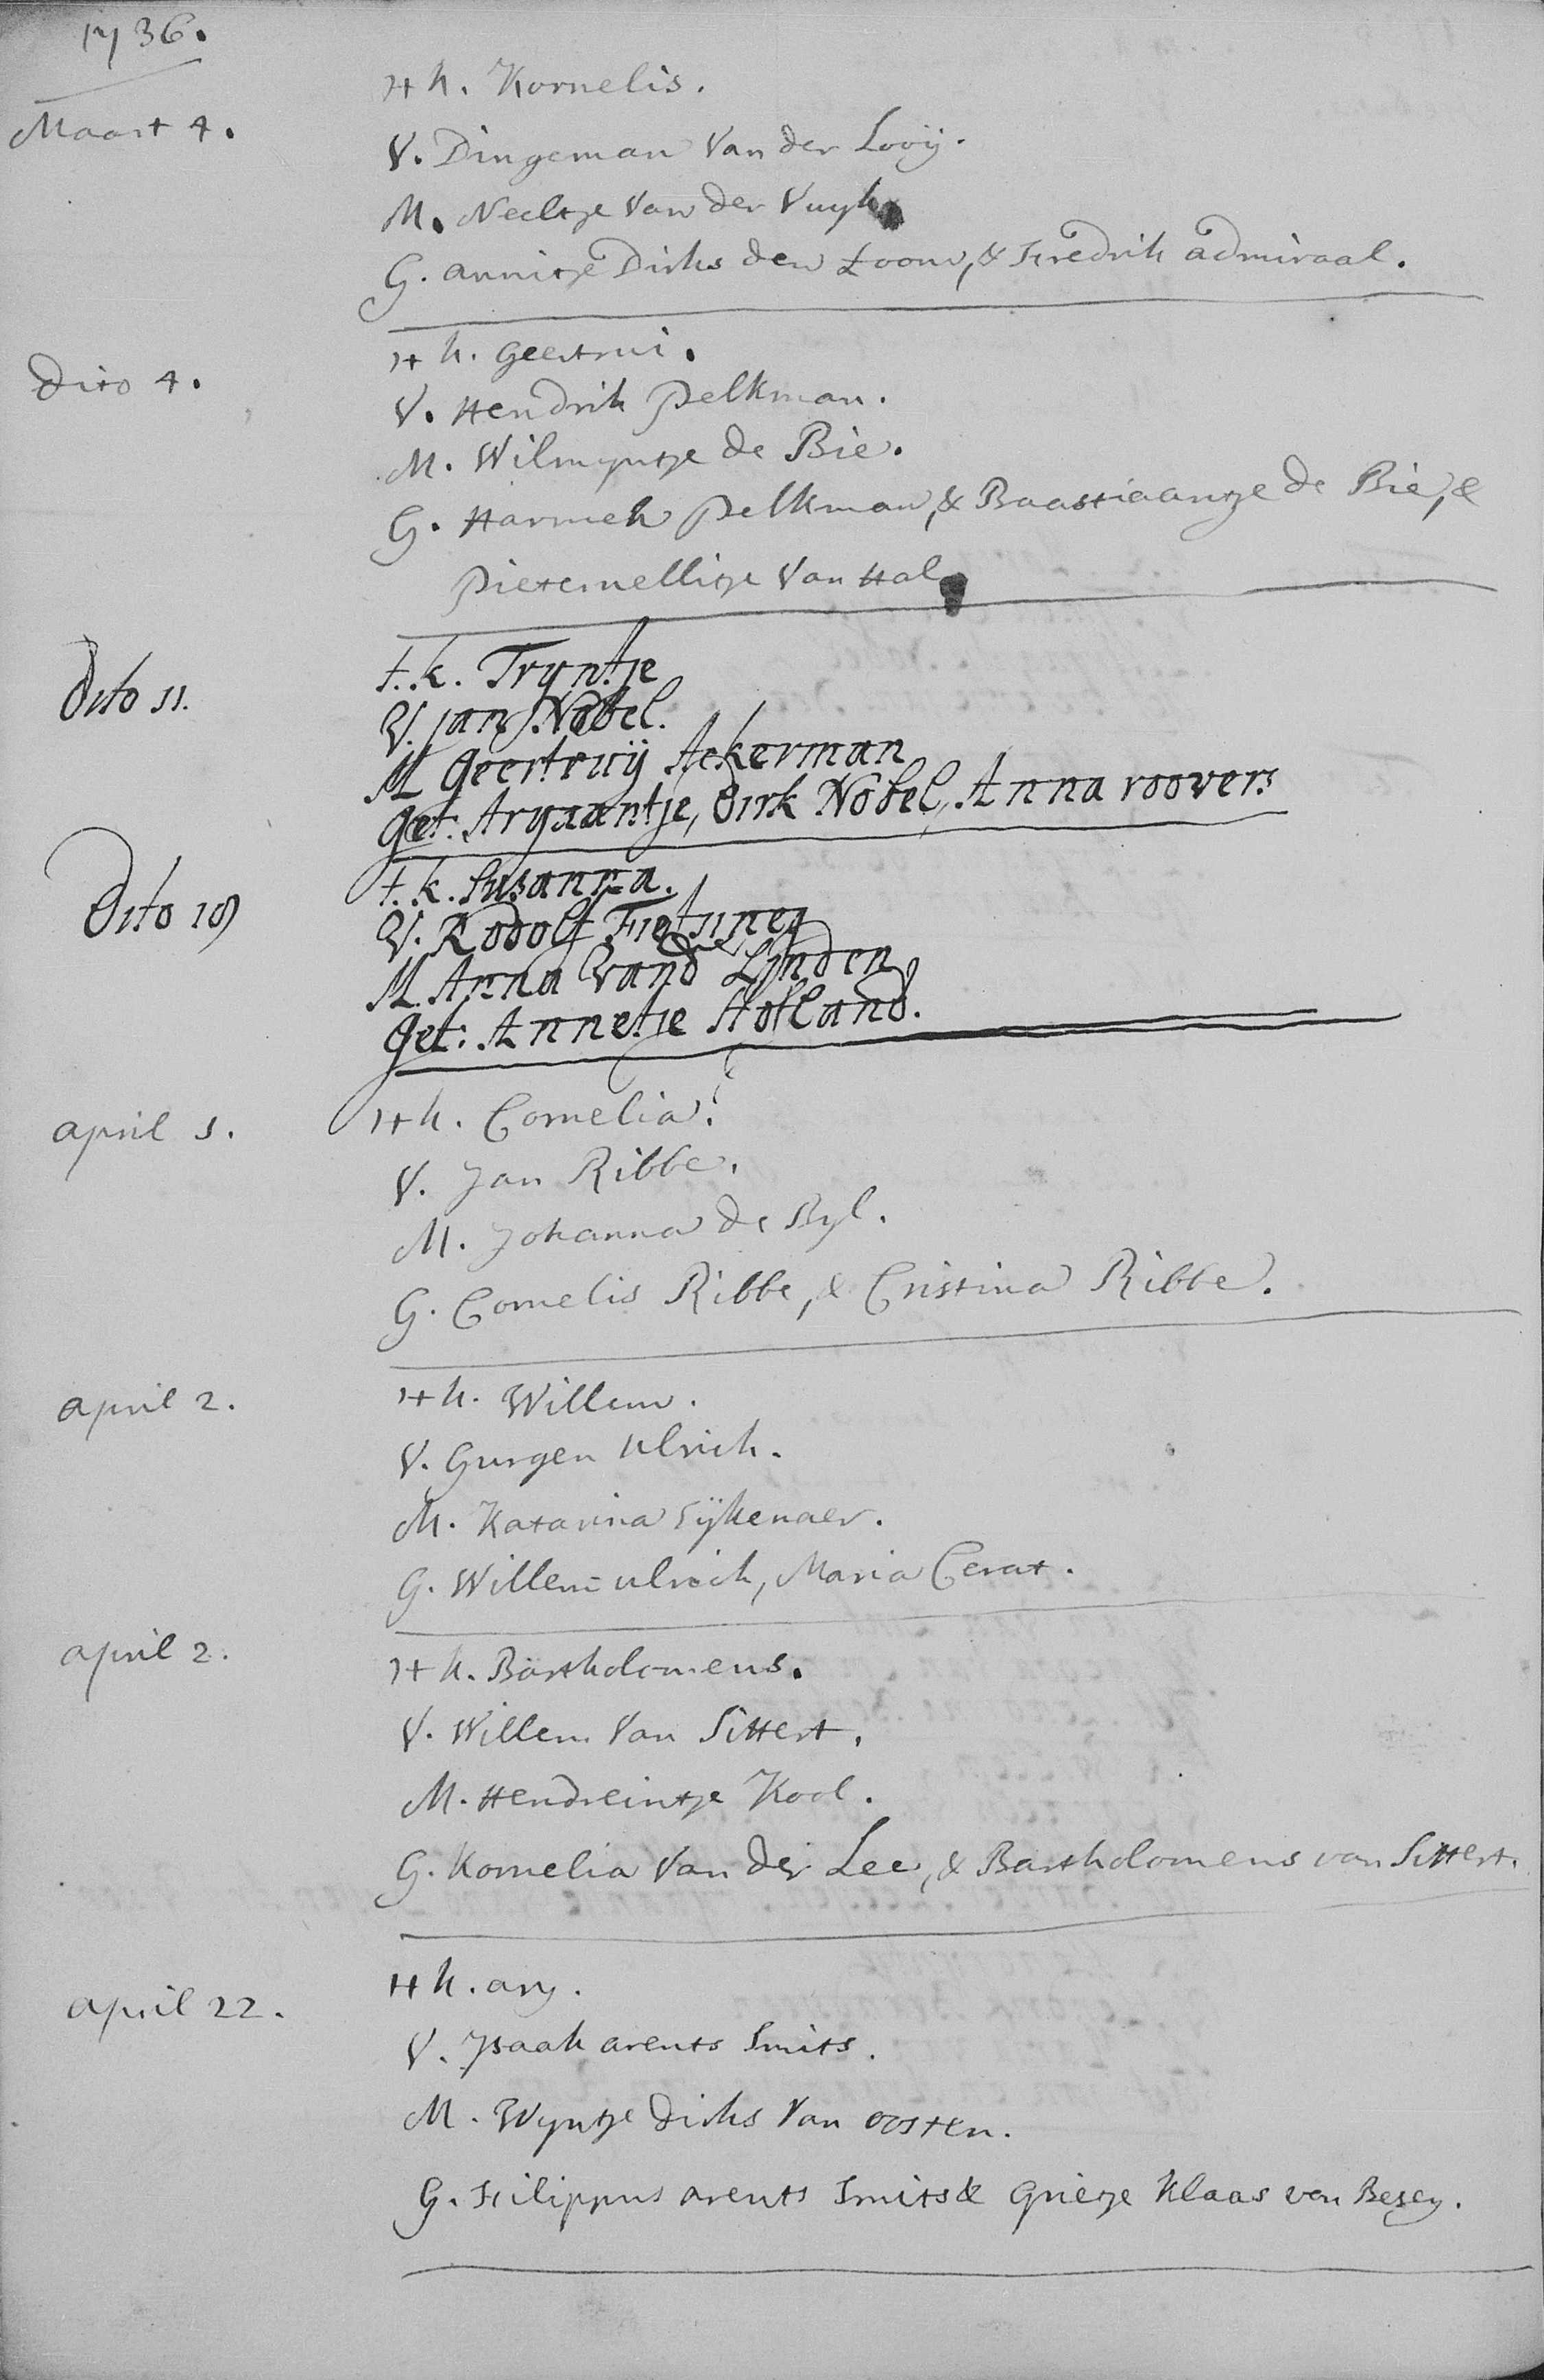 1736.
Maart 4.
't k. Kornelis.
V. Dingeman Van der Looÿ.
M. Neeltje Van der Vuyk
G. annitje Dirks den toom, & Fredrik admiraal.
Dito 4.
't k. geertrui.
V. Hendrik Pelkman.
M. Wilmyntje de Bie.
G. Harmen Pelkman, & Baastiaantje de Bie, &
Pieternellitje Van Hal
Dito 11.
t. k. Tryntje
V. jan Nobel.
M Geertruÿ Ackerman
Get. Aryaantje, Dirk Nobel, Anna roovers
Dito 18
t. k. Susanna.
V. Rodolf
M. Anna Vand Linden
Get: Annetje Holland.
april 1.
't k. Cornelia.
V. Jan Ribbe.
M. Johanna de Byl.
G. Cornelis Ribbe, & Cristina Ribbe.
april 2.
't k. Willem.
V. Gurgen Ulrich.
M. Katarina Sÿkenaer.
G. Willem ulrich, Maria Cerat.
april 2.
't k. Bartholomeus.
V. Willem Van Sittert.
M. Hendreintje Kool.
G. Kornelia Van der Lee, & Bartholomeus van Sittert.
april 22.
't k. ary.
V. Jsaak arents Smits.
M. Wyntje dirks Van oosten.
G. Filippus arents Smits & grietje Klaas van Besey.